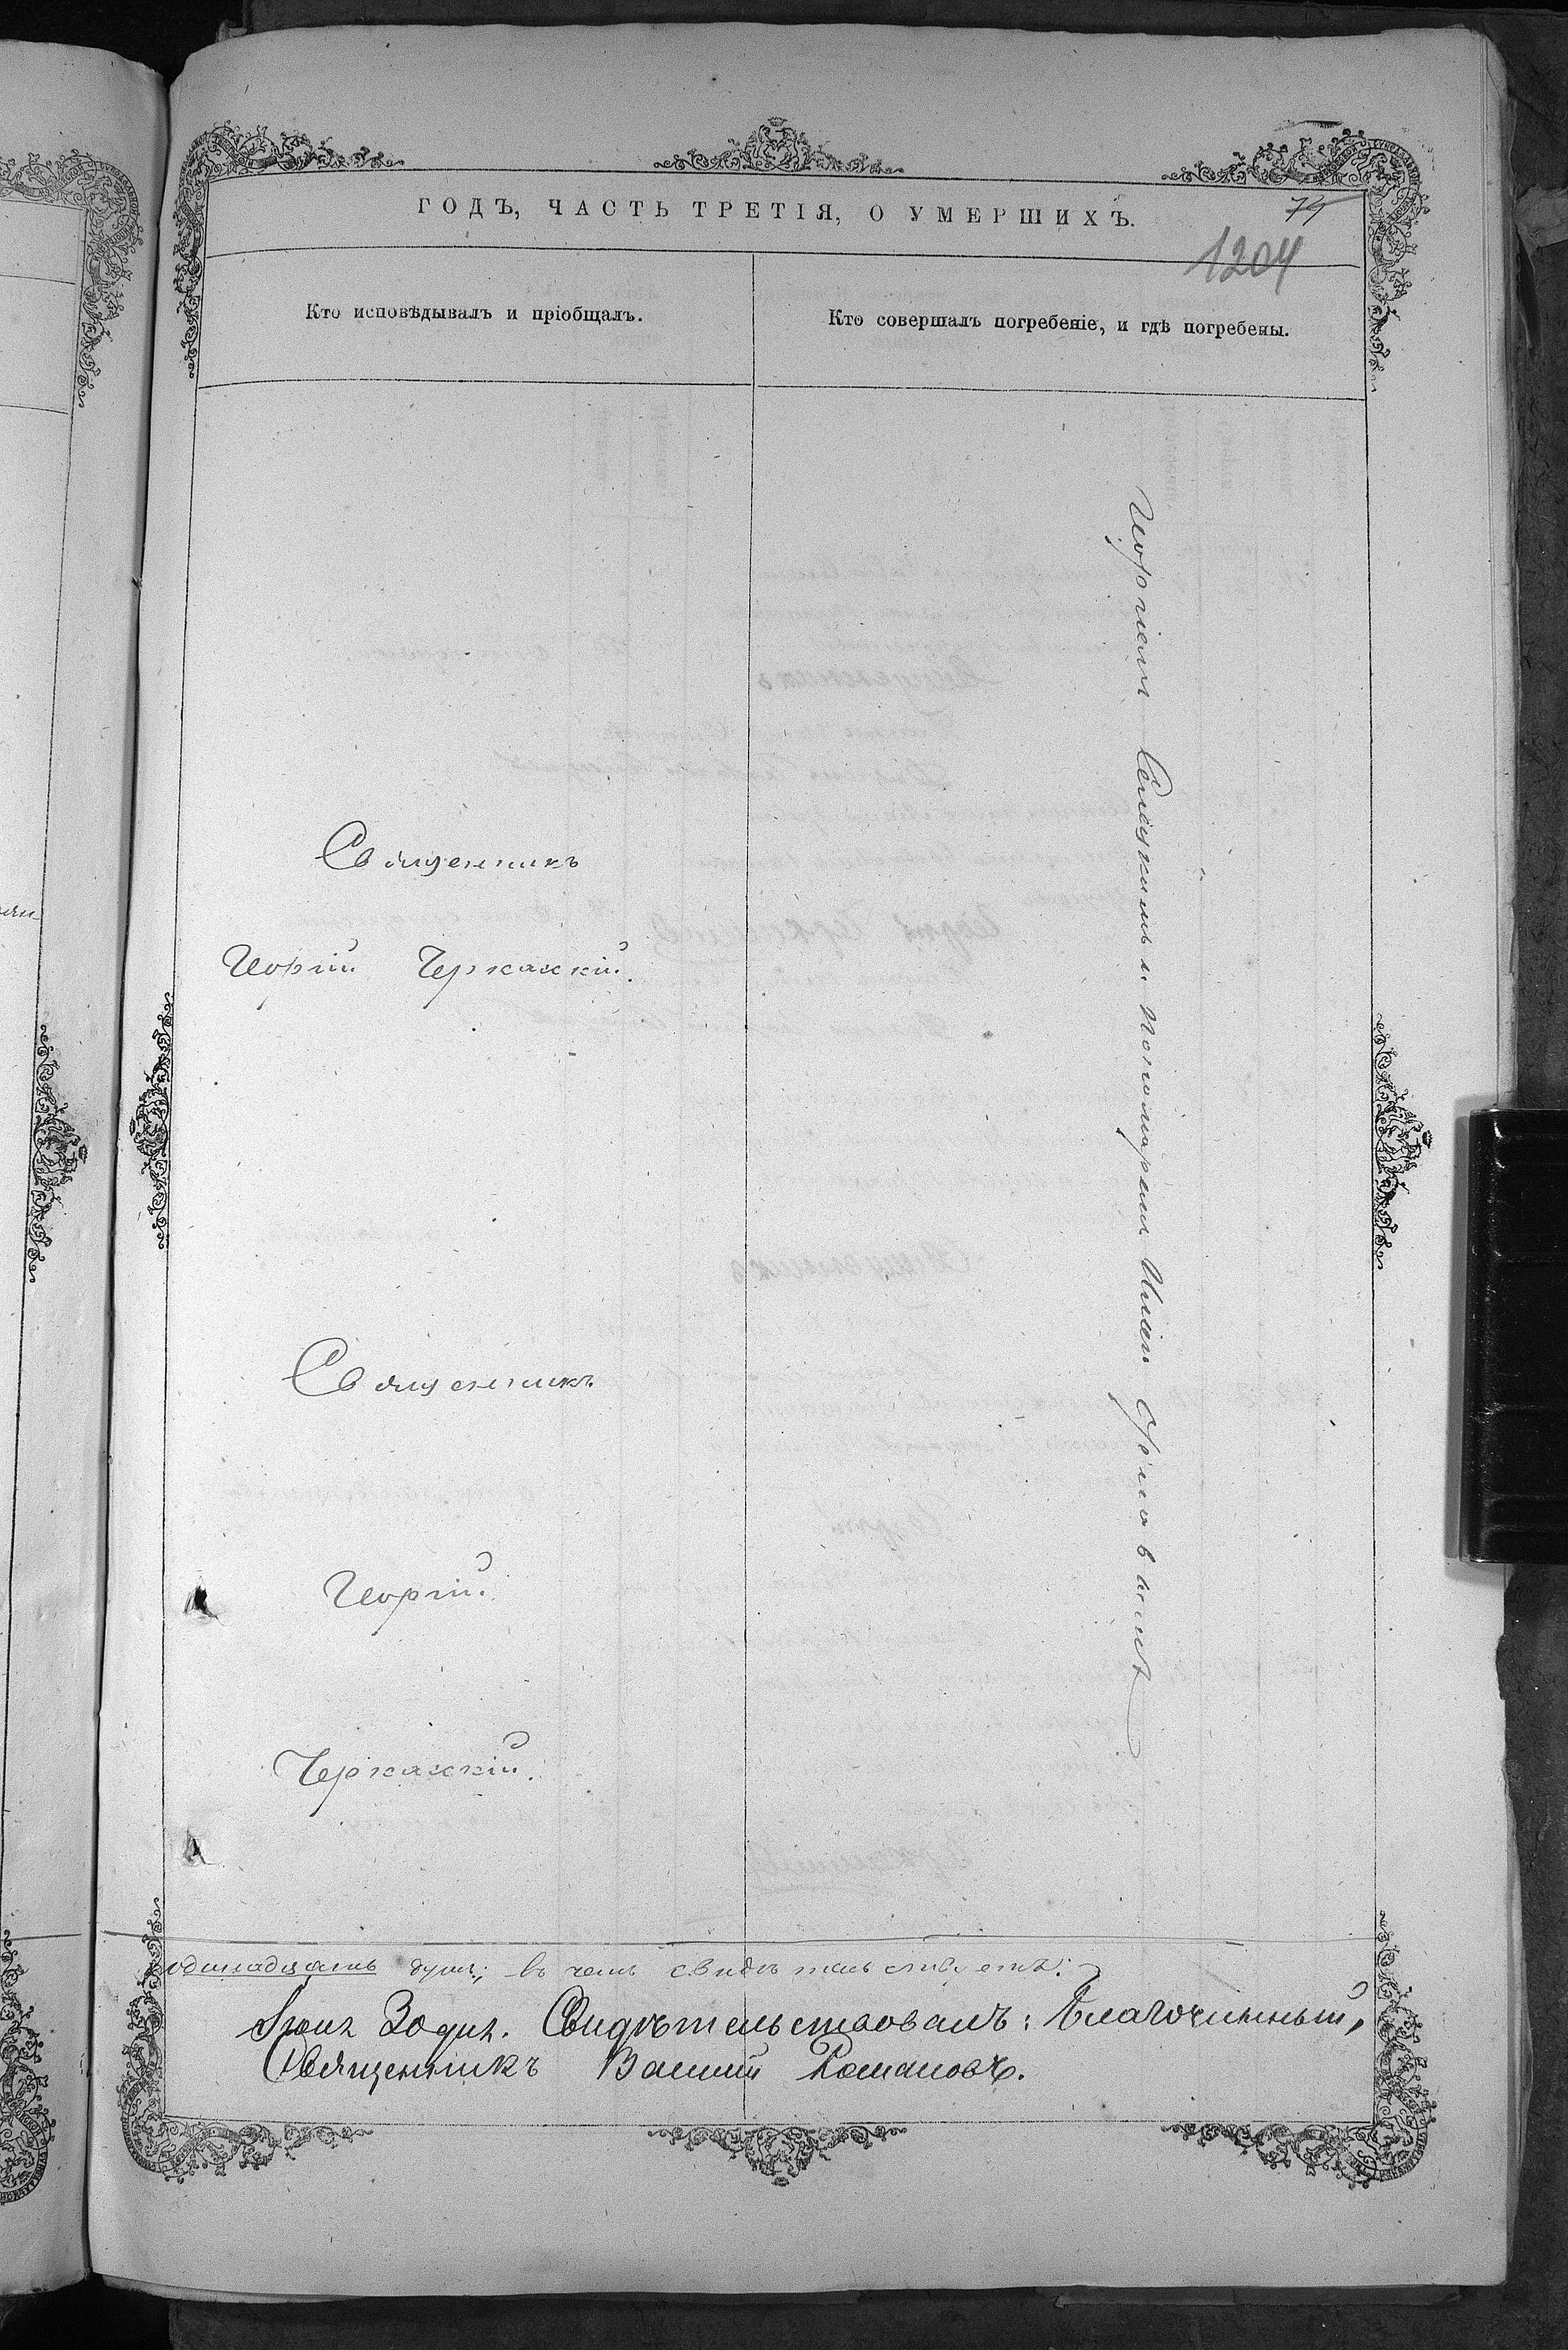 ГОДЪ, ЧАСТЬ ТРЕТІЯ, О УМЕРШИХЪ.
1204
Кто исповѣдывалъ и пріобщалъ.
Кто совершалъ погребеніе, и гдѣ погребены.
Священникъ
Георгій Черкаскій.
Священникъ
Георгій
Черкаскій.
и Пономарем
одинадцать душъ; въ чемъ свидѣтельствуетъ:
Свидѣтельствовалъ: Благочинный,
Священникъ Василій Романовъ.